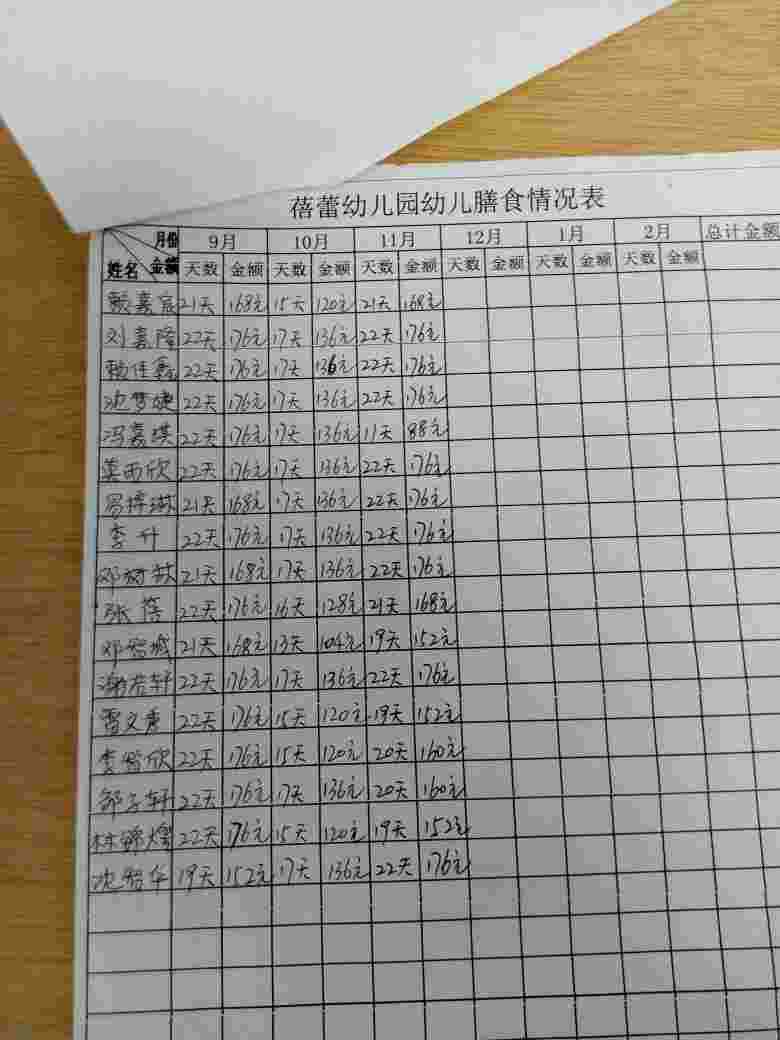 蓓蕾幼儿园幼儿膳食情况表
月份 9月 10月 11月 12月 1月 2月 总计金额
姓名 金额 天数 金额 天数 金额 天数 金额 天数 金额 天数 金额 天数 金额
赖嘉宸 21天 168元 15天 120元 21天 168元
刘嘉隆 22天 176元 17天 136元 22天 176元
赖佳鑫 22天 176元 17天 136元 22天 176元
沈梦婕 22天 176元 17天 136元 22天 176元
冯嘉琪 22天 176元 17天 136元 11天 88元
莫雨欣 22天 176元 17天 136元 22天 176元
21天 168元 17天 136元 22天 176元
李升 22天 176元 17天 136元 22天 176元
21天 168元 17天 136元 22天 176元
张蓓 22天 176元 16天 128元 21天 168元
邓智城 21天 168元 13天 104元 19天 152元
谢若轩 22天 176元 17天 136元 22天 176元
雷文康 22天 176元 15天 120元 19天 152元
22天 176元 15天 120元 20天 160元
邹子轩 22天 176元 17天 136元 20天 160元
22天 176元 15天 120元 19天 152元
19天 152元 17天 136元 22天 176元